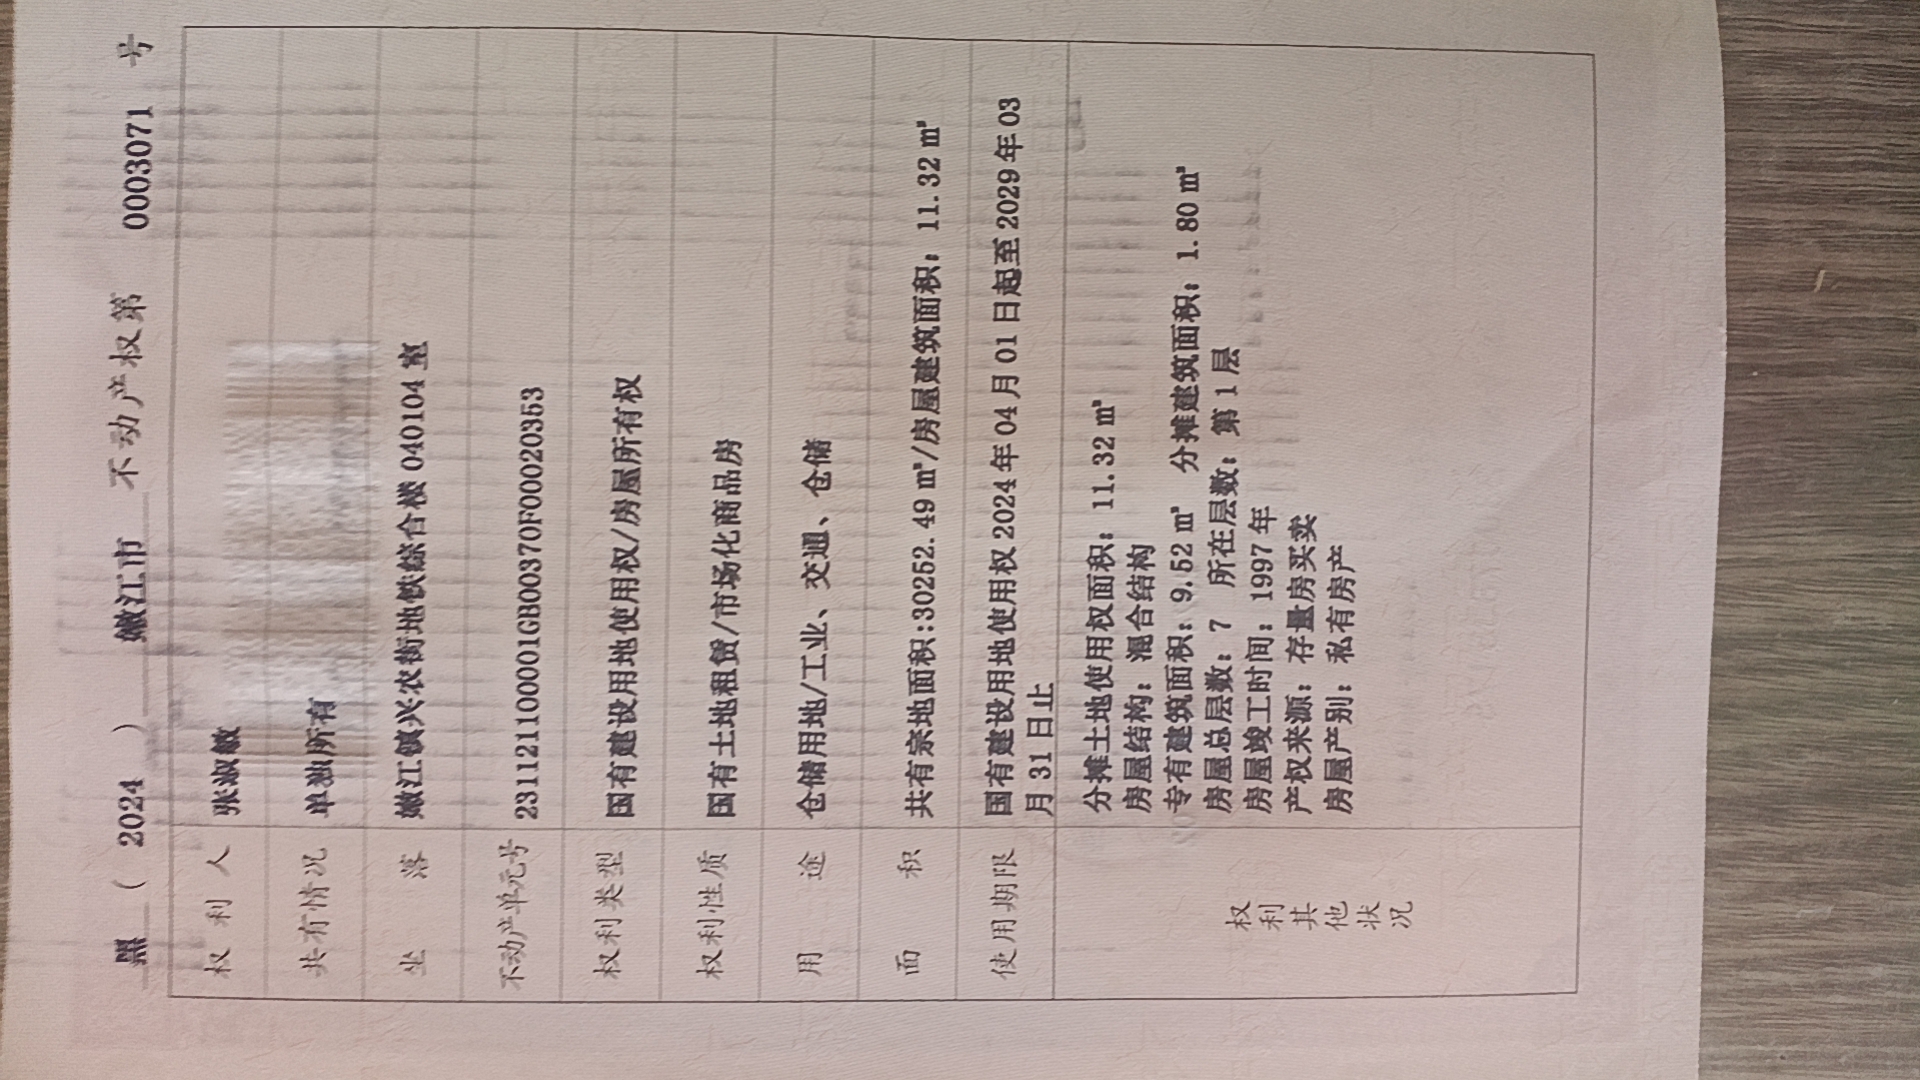 黑 ( 2024 ) 嫩江市 不动产权第 0003071 号
权利人 张淑敏
共有情况 单独所有
坐落 嫩江镇兴农街地铁综合楼 040104 室
不动产单元号 231121100001GB00370F00020353
权利类型 国有建设用地使用权/房屋所有权
权利性质 国有土地租赁/市场化商品房
用途 仓储用地/工业、交通、仓储
面积 共有宗地面积:30252.49 ㎡/房屋建筑面积: 11.32 ㎡
使用期限 国有建设用地使用权 2024 年 04 月 01 日起至 2029 年 03
月 31 日止
权利其他状况
分摊土地使用权面积: 11.32 ㎡
房屋结构: 混合结构
专有建筑面积: 9.52 ㎡ 分摊建筑面积: 1.80 ㎡
房屋总层数: 7 所在层数: 第 1 层
房屋竣工时间: 1997 年
产权来源: 存量房买卖
房屋产别: 私有房产